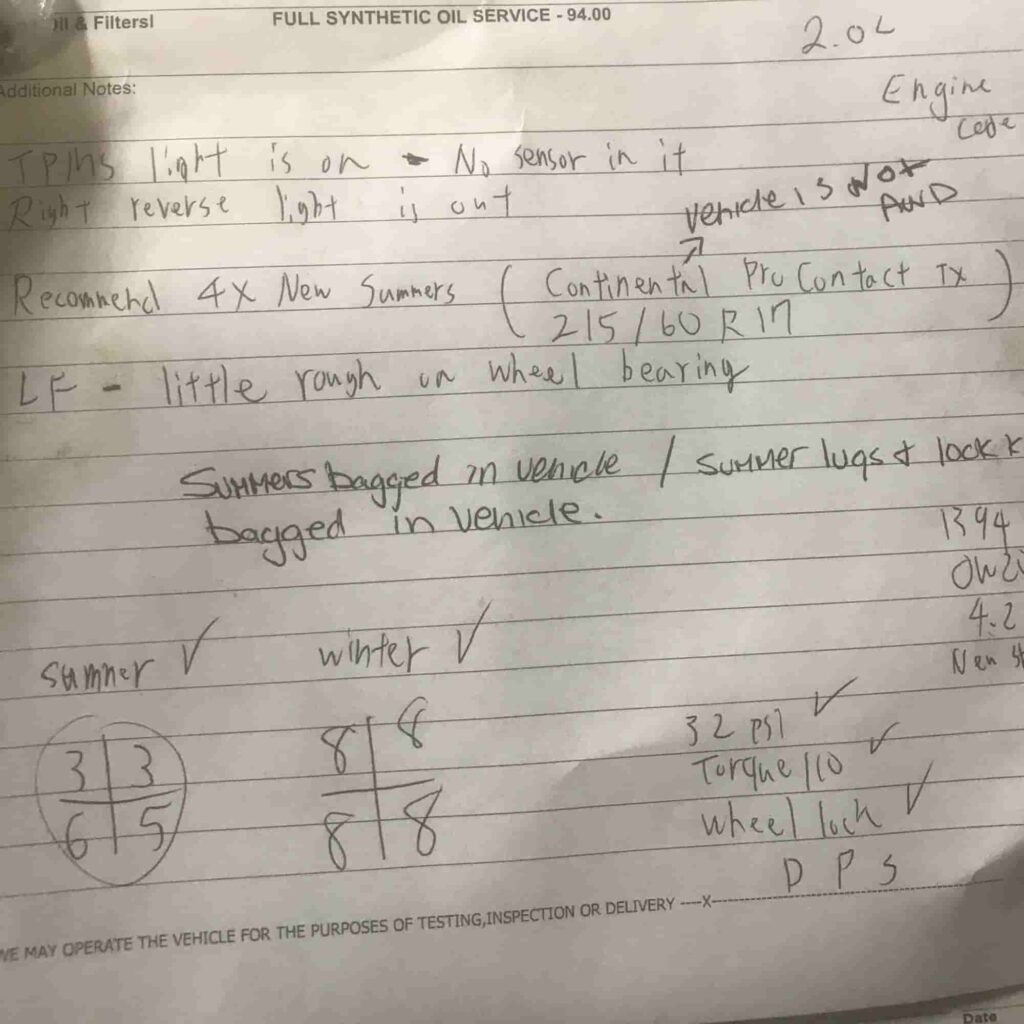 & Filters!
FULL SYNTHETIC OIL SERVICE - 94.00
2.0L
Additional Notes:
Engine
Code
TPMS light is on - No sensor in it
Right reverse light is out
vehicle is NOT
AWD
Recommend 4X New Summers (Continental Pro Contact TX)
215/60 R 17
LF - little rough on wheel bearing
Summers bagged in vehicle / summer lugs & lock
bagged in vehicle.
1394
4.2
summer ✓ winter ✓
3 3
6 5
8 8
8 8
32 psi ✓
Torque 110 ✓
wheel lock ✓
D P S
WE MAY OPERATE THE VEHICLE FOR THE PURPOSES OF TESTING,INSPECTION OR DELIVERY ----X----
Date